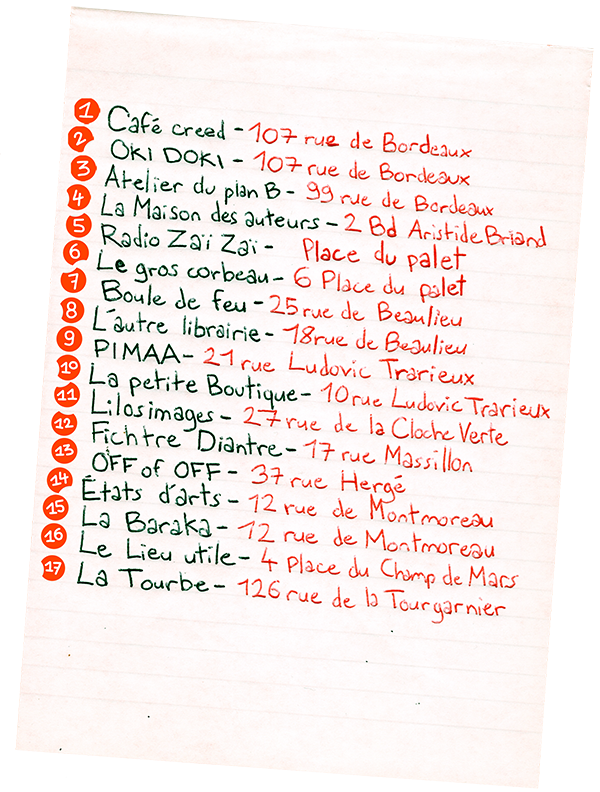 1 Café creed - 107 rue de Bordeaux
2 OKI DOKI - 107 rue de Bordeaux
3 Atelier du plan B - 99 rue de Bordeaux
4 La Maison des auteurs - 2 Bd Aristide Briand
5 Radio Zaï Zaï - Place du palet
6 Le gros corbeau - 6 Place du palet
7 Boule de feu - 25 rue de Beaulieu
8 L'autre librairie - 18 rue de Beaulieu
9 PIMAA - 21 rue Ludovic Trarieux
10 La petite Boutique - 10 rue Ludovic Trarieux
11 Lilosimages - 27 rue de la Cloche Verte
12 Fichtre Diantre - 17 rue Massillon
13 OFF of OFF - 37 rue Hergé
14 États d'arts - 12 rue de Montmoreau
15 La Baraka - 12 rue de Montmoreau
16 Le Lieu utile - 4 Place du Champ de Mars
17 La Tourbe - 126 rue de la Tourgarnier